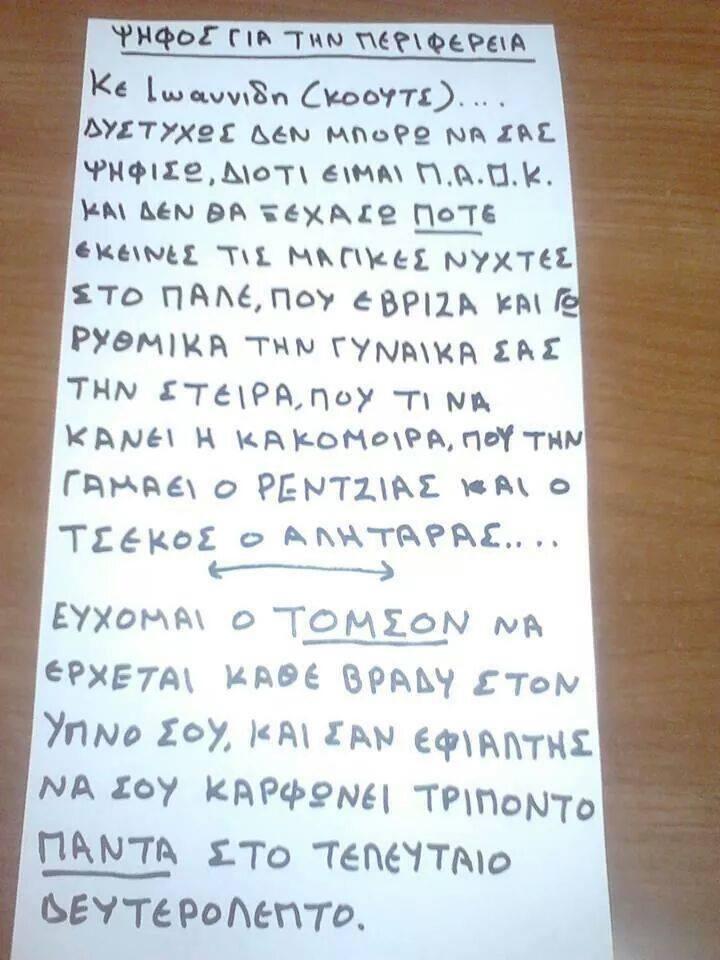 ΨΗΦΟΣ ΓΙΑ ΤΗΝ ΠΕΡΙΦΕΡΕΙΑ
Κε Ιωαννιδη (ΚΟΟΥΤΣ)....
ΔΥΣΤΥΧΩΣ ΔΕΝ ΜΠΟΡΩ ΝΑ ΣΑΣ
ΨΗΦΙΣΩ, ΔΙΟΤΙ ΕΙΜΑΙ Π.Α.Ο.Κ.
ΚΑΙ ΔΕΝ ΘΑ ΞΕΧΑΣΩ ΠΟΤΕ
ΕΚΕΙΝΕΣ ΤΙΣ ΜΑΓΙΚΕΣ ΝΥΧΤΕΣ
ΣΤΟ ΠΑΛΕ, ΠΟΥ ΕΒΡΙΖΑ ΚΑΙ ΓΩ
ΡΥΘΜΙΚΑ ΤΗΝ ΓΥΝΑΙΚΑ ΣΑΣ
ΤΗΝ ΣΤΕΙΡΑ, ΠΟΥ ΤΙ ΝΑ
ΚΑΝΕΙ Η ΚΑΚΟΜΟΙΡΑ, ΠΟΥ ΤΗΝ
ΓΑΜΑΕΙ Ο ΡΕΝΤΖΙΑΣ ΚΑΙ Ο
ΤΣΕΚΟΣ Ο ΑΛΗΤΑΡΑΣ....
ΕΥΧΟΜΑΙ Ο ΤΟΜΣΟΝ ΝΑ
ΕΡΧΕΤΑΙ ΚΑΘΕ ΒΡΑΔΥ ΣΤΟΝ
ΥΠΝΟ ΣΟΥ, ΚΑΙ ΣΑΝ ΕΦΙΑΛΤΗΣ
ΝΑ ΣΟΥ ΚΑΡΦΩΝΕΙ ΤΡΙΠΟΝΤΟ
ΠΑΝΤΑ ΣΤΟ ΤΕΛΕΥΤΑΙΟ
ΔΕΥΤΕΡΟΛΕΠΤΟ.